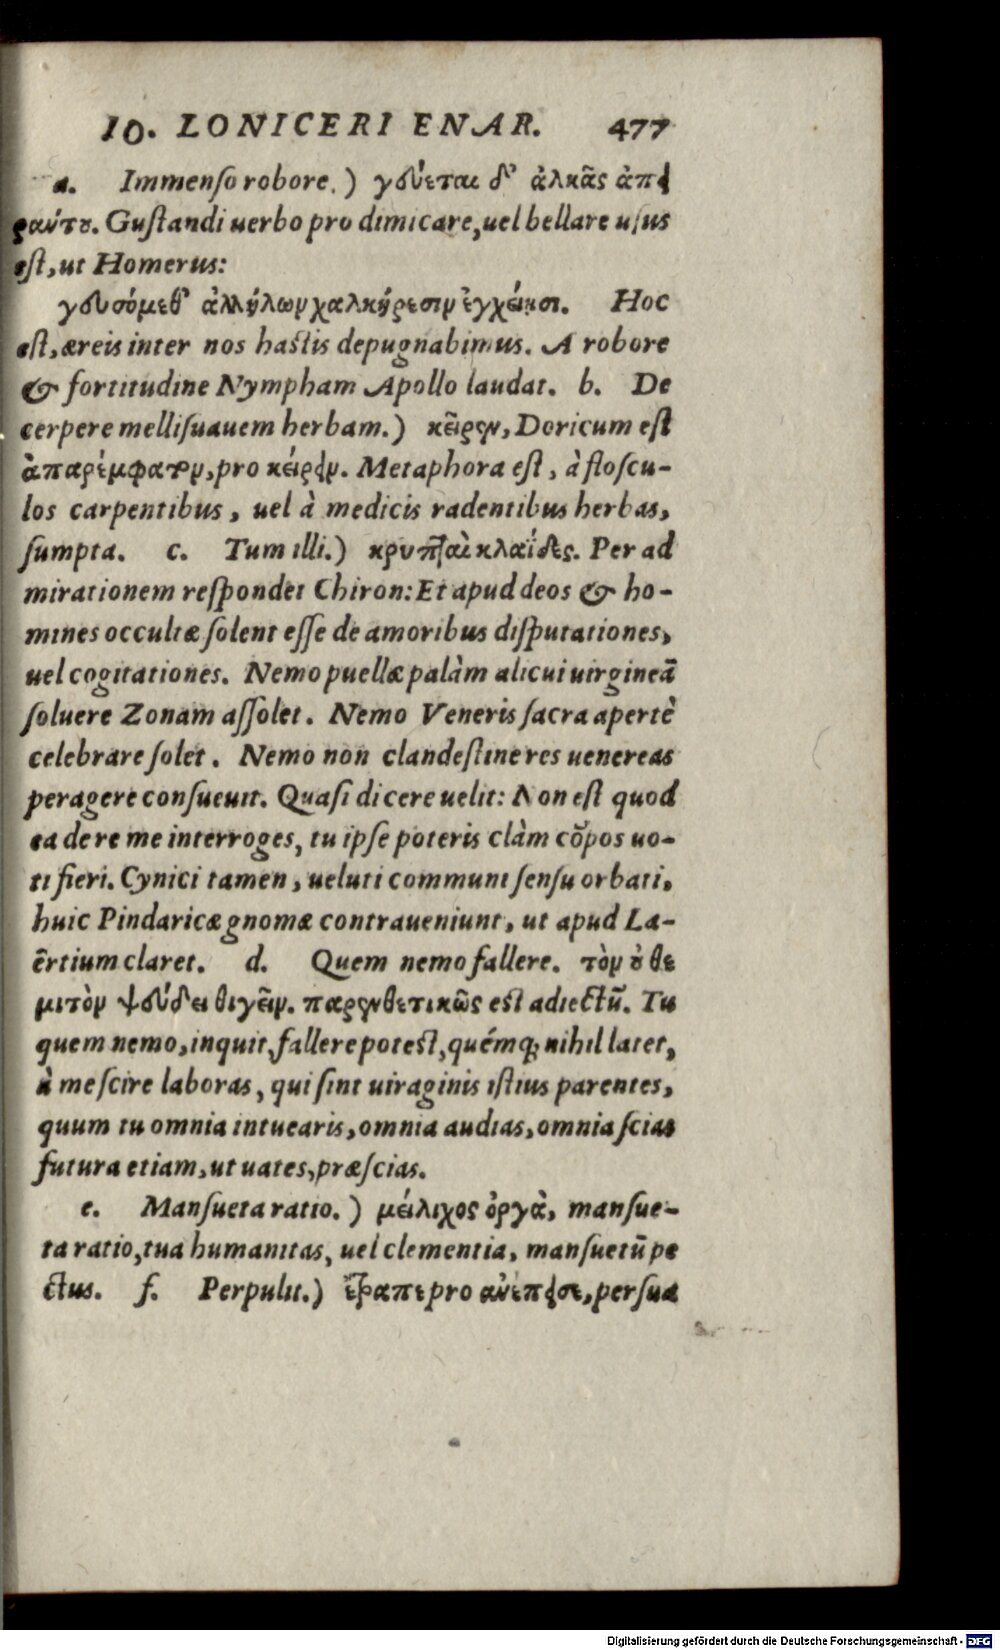 IO. LONICERI ENAR. 477
a. Immenso robore.) γεύεται δ' ἀλκᾶς ἀπει
ράντου. Gustandi uerbo pro dimicare, uel bellare usus
est, ut Homerus:
γευσόμεθ' ἀλλήλων χαλκήρεσιν ἐγχείῃσι. Hoc
est, æreis inter nos hastis depugnabimus. A robore
& fortitudine Nympham Apollo laudat. b. De
cerpere mellisuauem herbam.) κεῖρεν, Doricum est
ἀπαρέμφατον, pro κείρειν. Metaphora est, à floscu-
los carpentibus, uel à medicis radentibus herbas,
sumpta. c. Tum illi.) κρυπταὶ κλαΐδες. Per ad
mirationem respondet Chiron: Et apud deos & ho-
mines occultæ solent esse de amoribus disputationes,
uel cogitationes. Nemo puellæ palàm alicui uirgineā
soluere Zonam assolet. Nemo Veneris sacra apertè
celebrare solet. Nemo non clandestine res uenereas
peragere consueuit. Quasi dicere uelit: Non est quod
ea de re me interroges, tu ipse poteris clàm cōpos uo-
ti fieri. Cynici tamen, ueluti communi sensu orbati,
huic Pindaricæ gnomæ contraueniunt, ut apud La-
ërtium claret. d. Quem nemo fallere. τὸν οὐ θε
μιτὸν ψεύδει θιγεῖν. παρενθετικῶς est adiectū. Tu
quem nemo, inquit, fallere potest, quémq; nihil latet,
à me scire laboras, qui sint uiraginis istius parentes,
quum tu omnia intuearis, omnia audias, omnia scias
futura etiam, ut uates, præscias.
e. Mansueta ratio.) μείλιχος ὀργὰ, mansue-
ta ratio, tua humanitas, uel clementia, mansuetū pe
ctus. f. Perpulit.) ἔτραπε pro ἀνέπεισε, persua
Digitalisierung gefördert durch die Deutsche Forschungsgemeinschaft - DFG